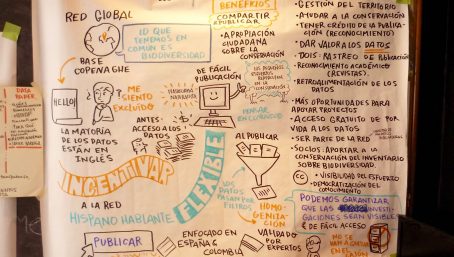 RED GLOBAL
ID QUE
TENEMOS EN
COMÚN ES
BIODIVERSIDAD
BASE
COPENAGHE
HELLO!
ME
SIENTO
EXCLUÍDO
LA MAYORÍA
DE LOS DATOS
ESTÁN EN
INGLÉS
INCENTIVAR
A LA RED
HISPANO HABLANTE
PUBLICAR
BENEFICIOS
COMPARTIR
PUBLICAR
• APROPIACIÓN
CIUDADANA
SOBRE LA
CONSERVACIÓN
DE FÁCIL
PUBLICACIÓN
PENSAR
EN COLECTIVO
ANTES
ACCESO A LOS
DATOS
FLEXIBLE
AL PUBLICAR
LOS
DATOS
PASAN POR
FILTROS
HOMO-
GENIZA-
CIÓN
ENFOCADO EN
ESPAÑA &
COLOMBIA
VALIDADO
POR
EXPERTOS
• GESTIÓN DEL TERRITORIO
• AYUDAR A LA CONSERVACIÓN
• TENER CRÉDITO DE LA PUBLICA-
CIÓN (RECONOCIMIENTO)
• DAR VALOR A LOS DATOS
• DOIS: RASTREO DE PUBLICACIÓN
• RECONOCIMIENTO ACADÉMICO
(REVISTAS).
• RETROALIMENTACIÓN DE LOS
DATOS
• MÁS OPORTUNIDADES PARA
APOYAR PROYECTOS
• ACCESO GRATUITO DE POR
VIDA A LOS DATOS
• SER PARTE DE LA RED
• SOCIOS: APORTAR A LA
CONSERVACIÓN DEL INVENTARIO
SOBRE BIODIVERSIDAD.
CC
• VISIBILIDAD DEL ESFUERZO
• DEMOCRATIZACIÓN DEL
CONOCIMIENTO
PODEMOS GARANTIZAR
QUE LAS INVESTI-
GACIONES SEAN VISIBLES
& DE FÁCIL ACCESO
NO SE
VAN A QUEDAR
EN EL
CAJÓN
DATA
PAPER